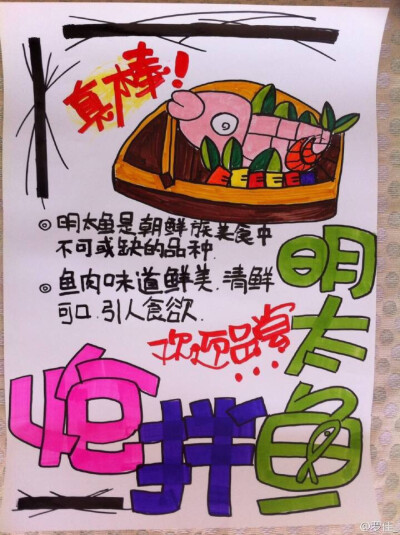 真棒!
◎ 明太鱼是朝鲜族美食中
不可或缺的品种.
◎ 鱼肉味道鲜美.清鲜
可口.引人食欲.
欢迎品尝...
炝拌
明太鱼